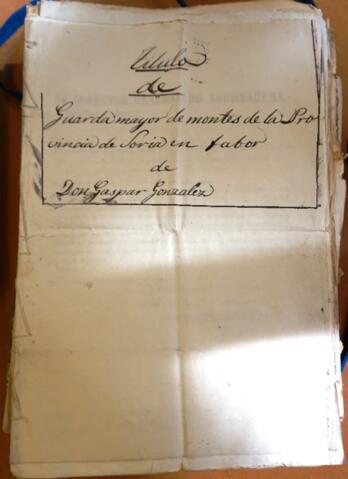 Titulo
de
Guarda mayor de montes de la Pro
vincia de Soria en fabor
de
Don Gaspar Gonzalez